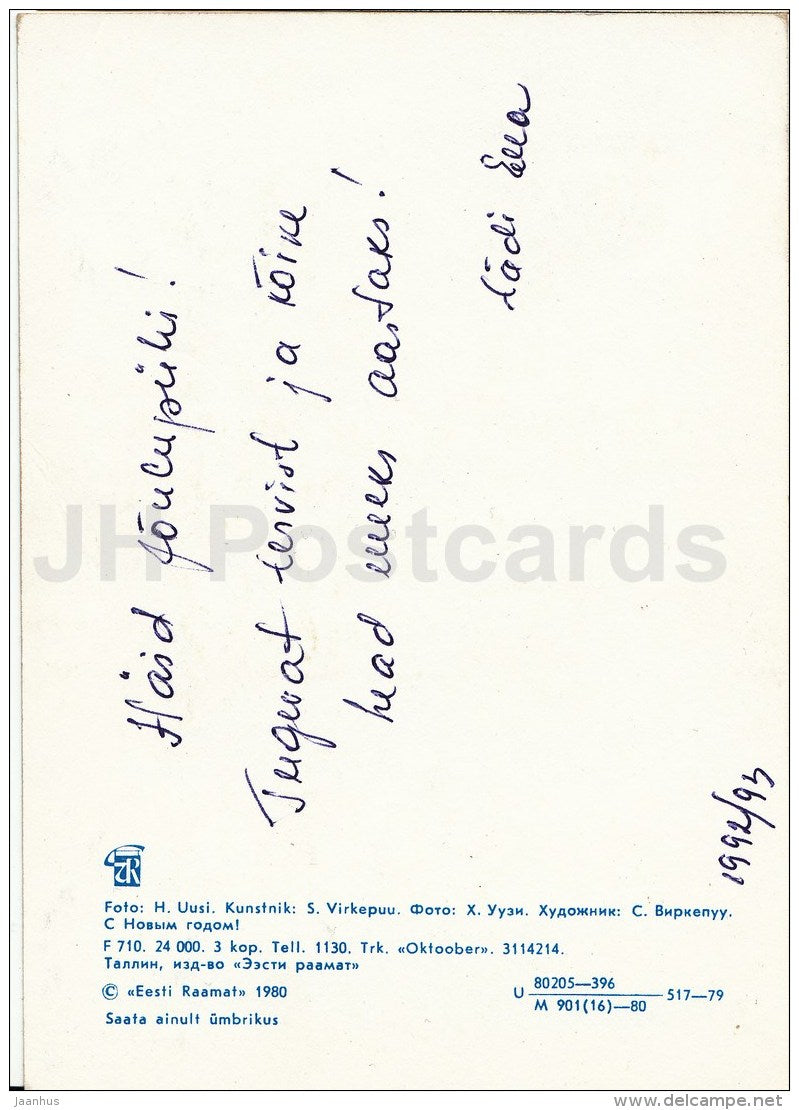 Häid jõulupühi!
Tugevat tervist ja kõike
head uueks aastaks!
tädi Ella
1992/93
JH Postcards
Foto: H. Uusi. Kunstnik: S. Virkepuu. Фото: Х. Уузи. Художник: С. Виркепуу.
С Новым годом!
F 710. 24 000. 3 kop. Tell. 1130. Trk. «Oktoober». 3114214.
Таллин, изд-во «Ээсти раамат»
© «Eesti Raamat» 1980
U 80205—396 517—79
M 901(16)—80
Saata ainult ümbrikus
Jaanhus
www.delcampe.net